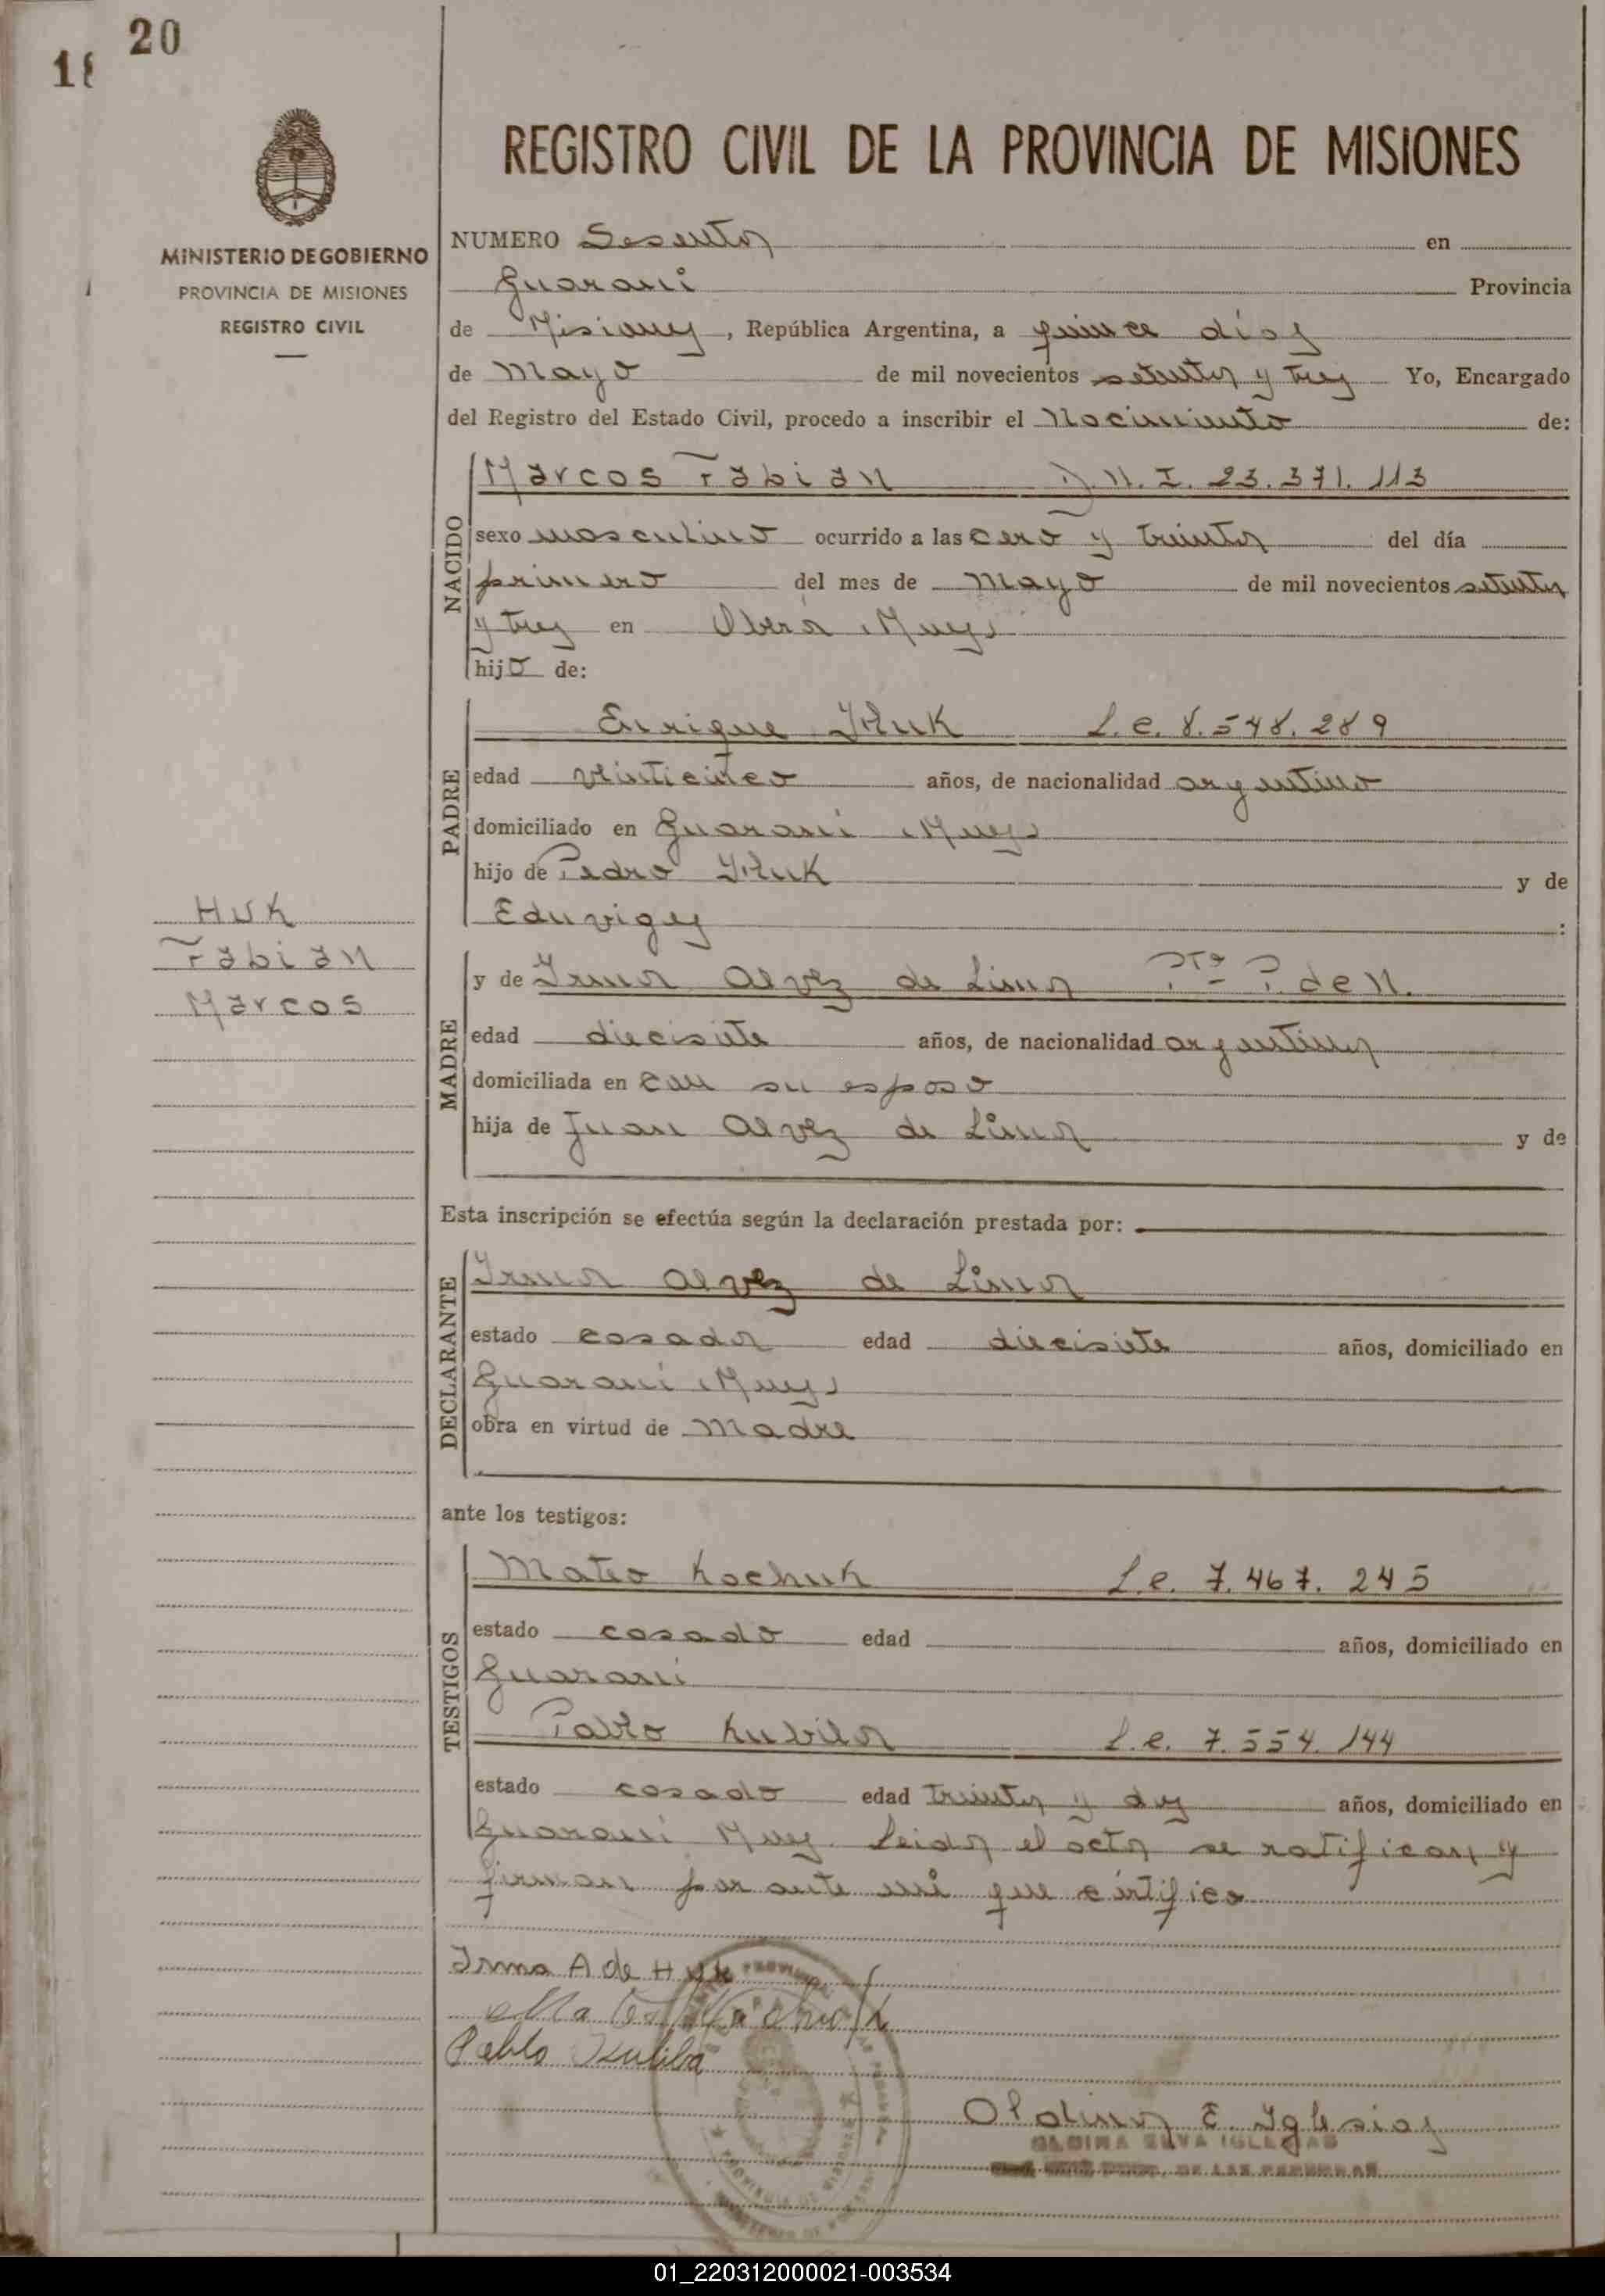 20
18
REGISTRO CIVIL DE LA PROVINCIA DE MISIONES
MINISTERIO DE GOBIERNO
PROVINCIA DE MISIONES
REGISTRO CIVIL
NUMERO Sesenta en
Guaraní Provincia
de Misiones, República Argentina, a quince días
de Mayo de mil novecientos setenta y tres Yo, Encargado
del Registro del Estado Civil, procedo a inscribir el Nacimiento de:
NACIDO
Marcos Fabian D.N.I. 23.371.113
sexo masculino ocurrido a las cero y treinta del día
primero del mes de Mayo de mil novecientos setenta
y tres en Oberá Mnes
hijo de:
PADRE
Enrique Huk L.e. 8.548.289
edad veinticinco años, de nacionalidad argentino
domiciliado en Guaraní Mnes
hijo de Pedro Huk y de
Eduviges :
HUK
Fabian
Marcos
MADRE
y de Irma Alvez de Lima Nº P. de N.
edad diecisiete años, de nacionalidad argentina
domiciliada en con su esposo
hija de Juan Alvez de Lima y de
Esta inscripción se efectúa según la declaración prestada por:
DECLARANTE
Irma Alvez de Lima
estado casada edad diecisiete años, domiciliado en
Guaraní Mnes
obra en virtud de Madre
ante los testigos:
TESTIGOS
Mateo Kochuk L.e. 7.467.245
estado casado edad años, domiciliado en
Guaraní
Pablo Kubila L.e. 7.554.144
estado casado edad treinta y dos años, domiciliado en
Guaraní Mnes. Leida el acta se ratifican y
firman por ante mí que certifico
Irma A de Huk
Mateo Kachuk
Pablo Kuliba
Oldina E. Iglesias
OLDINA SILVA IGLESIAS
01_220312000021-003534